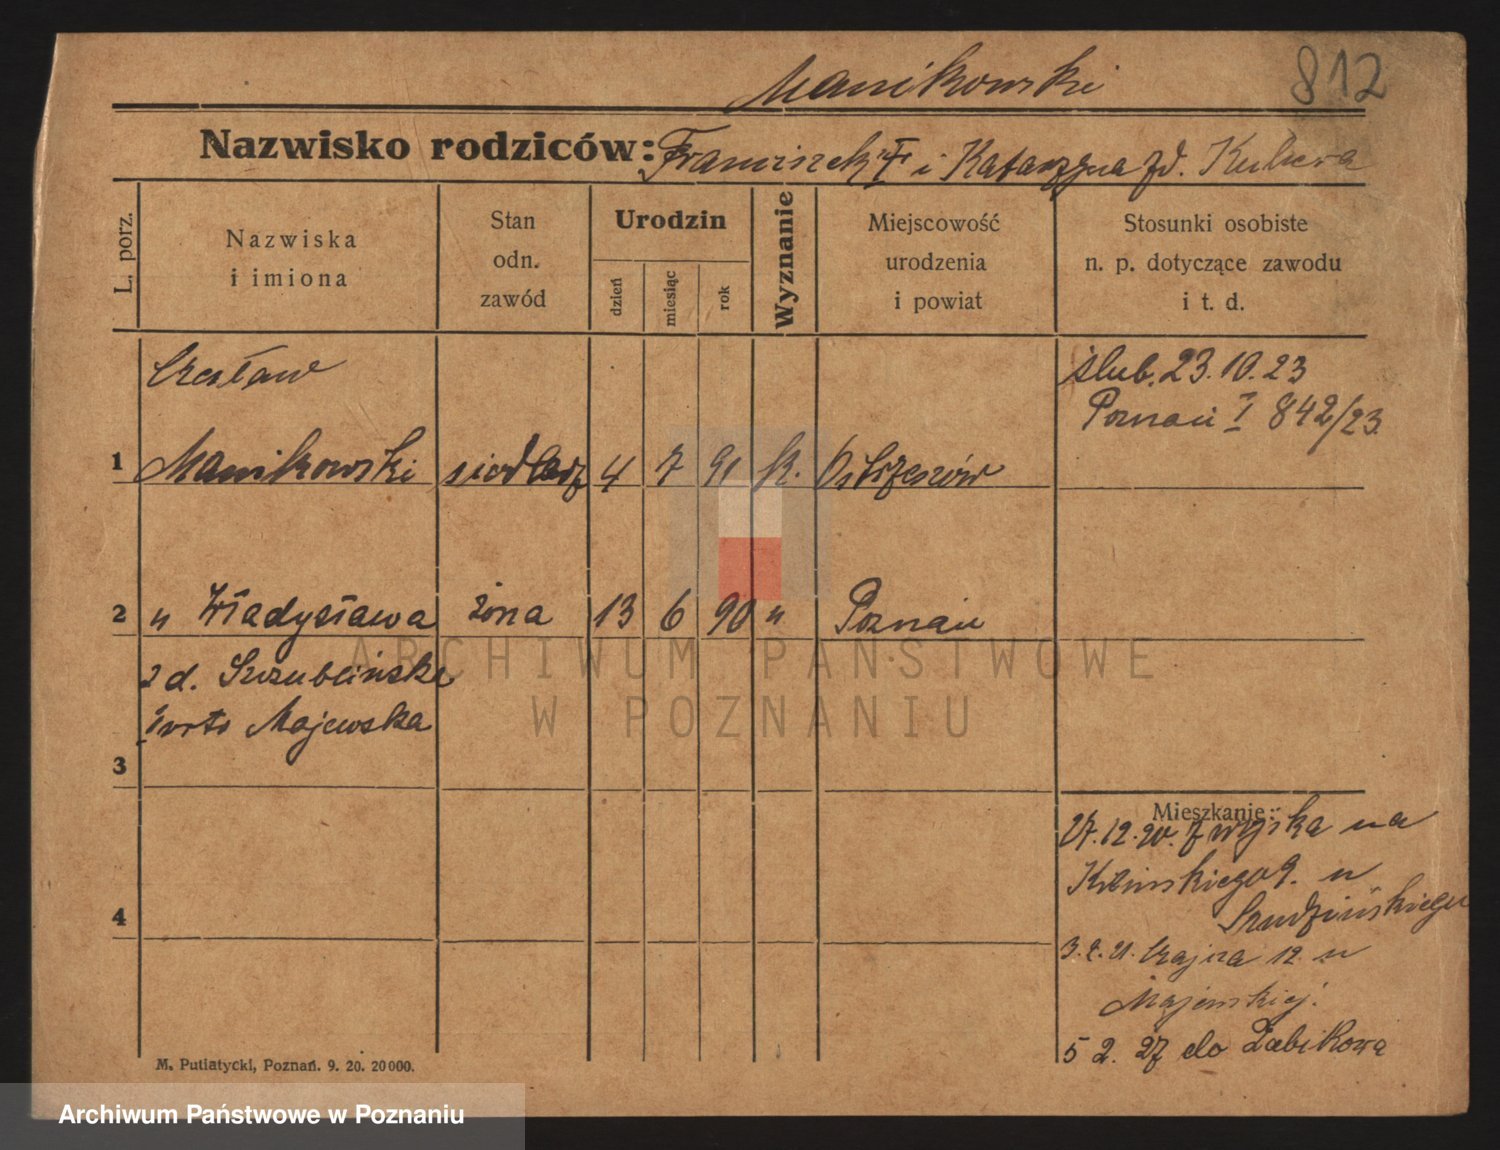 Manikowski 812
Nazwisko rodziców: Franciszek i Katarzyna zd. Kulesza
L. porz.
Nazwiska
i imiona
Stan
odn.
zawód
Urodzin
dzień
miesiąc
rok
Wyznanie
Miejscowość
urodzenia
i powiat
Stosunki osobiste
n. p. dotyczące zawodu
i t. d.
Czesław
ślub. 23.10.23
Poznań I 842/23.
1 Manikowski siodlarz 4 7 91 k. Ostrzeszów
2 " Władysława żona 13 6 90 " Poznań
zd. Szczublińska
I vrto Majewska
3
Mieszkanie:
27.12.20. z wojska na
Kilińskiego 9. u
Szudzińskiego
4
3.2.21. Czajcza 12. u
Majewskiej.
5 2. 27 do Żabikowa
M. Putiatycki, Poznań. 9. 20. 20000.
ARCHIWUM PAŃSTWOWE
W POZNANIU
Archiwum Państwowe w Poznaniu